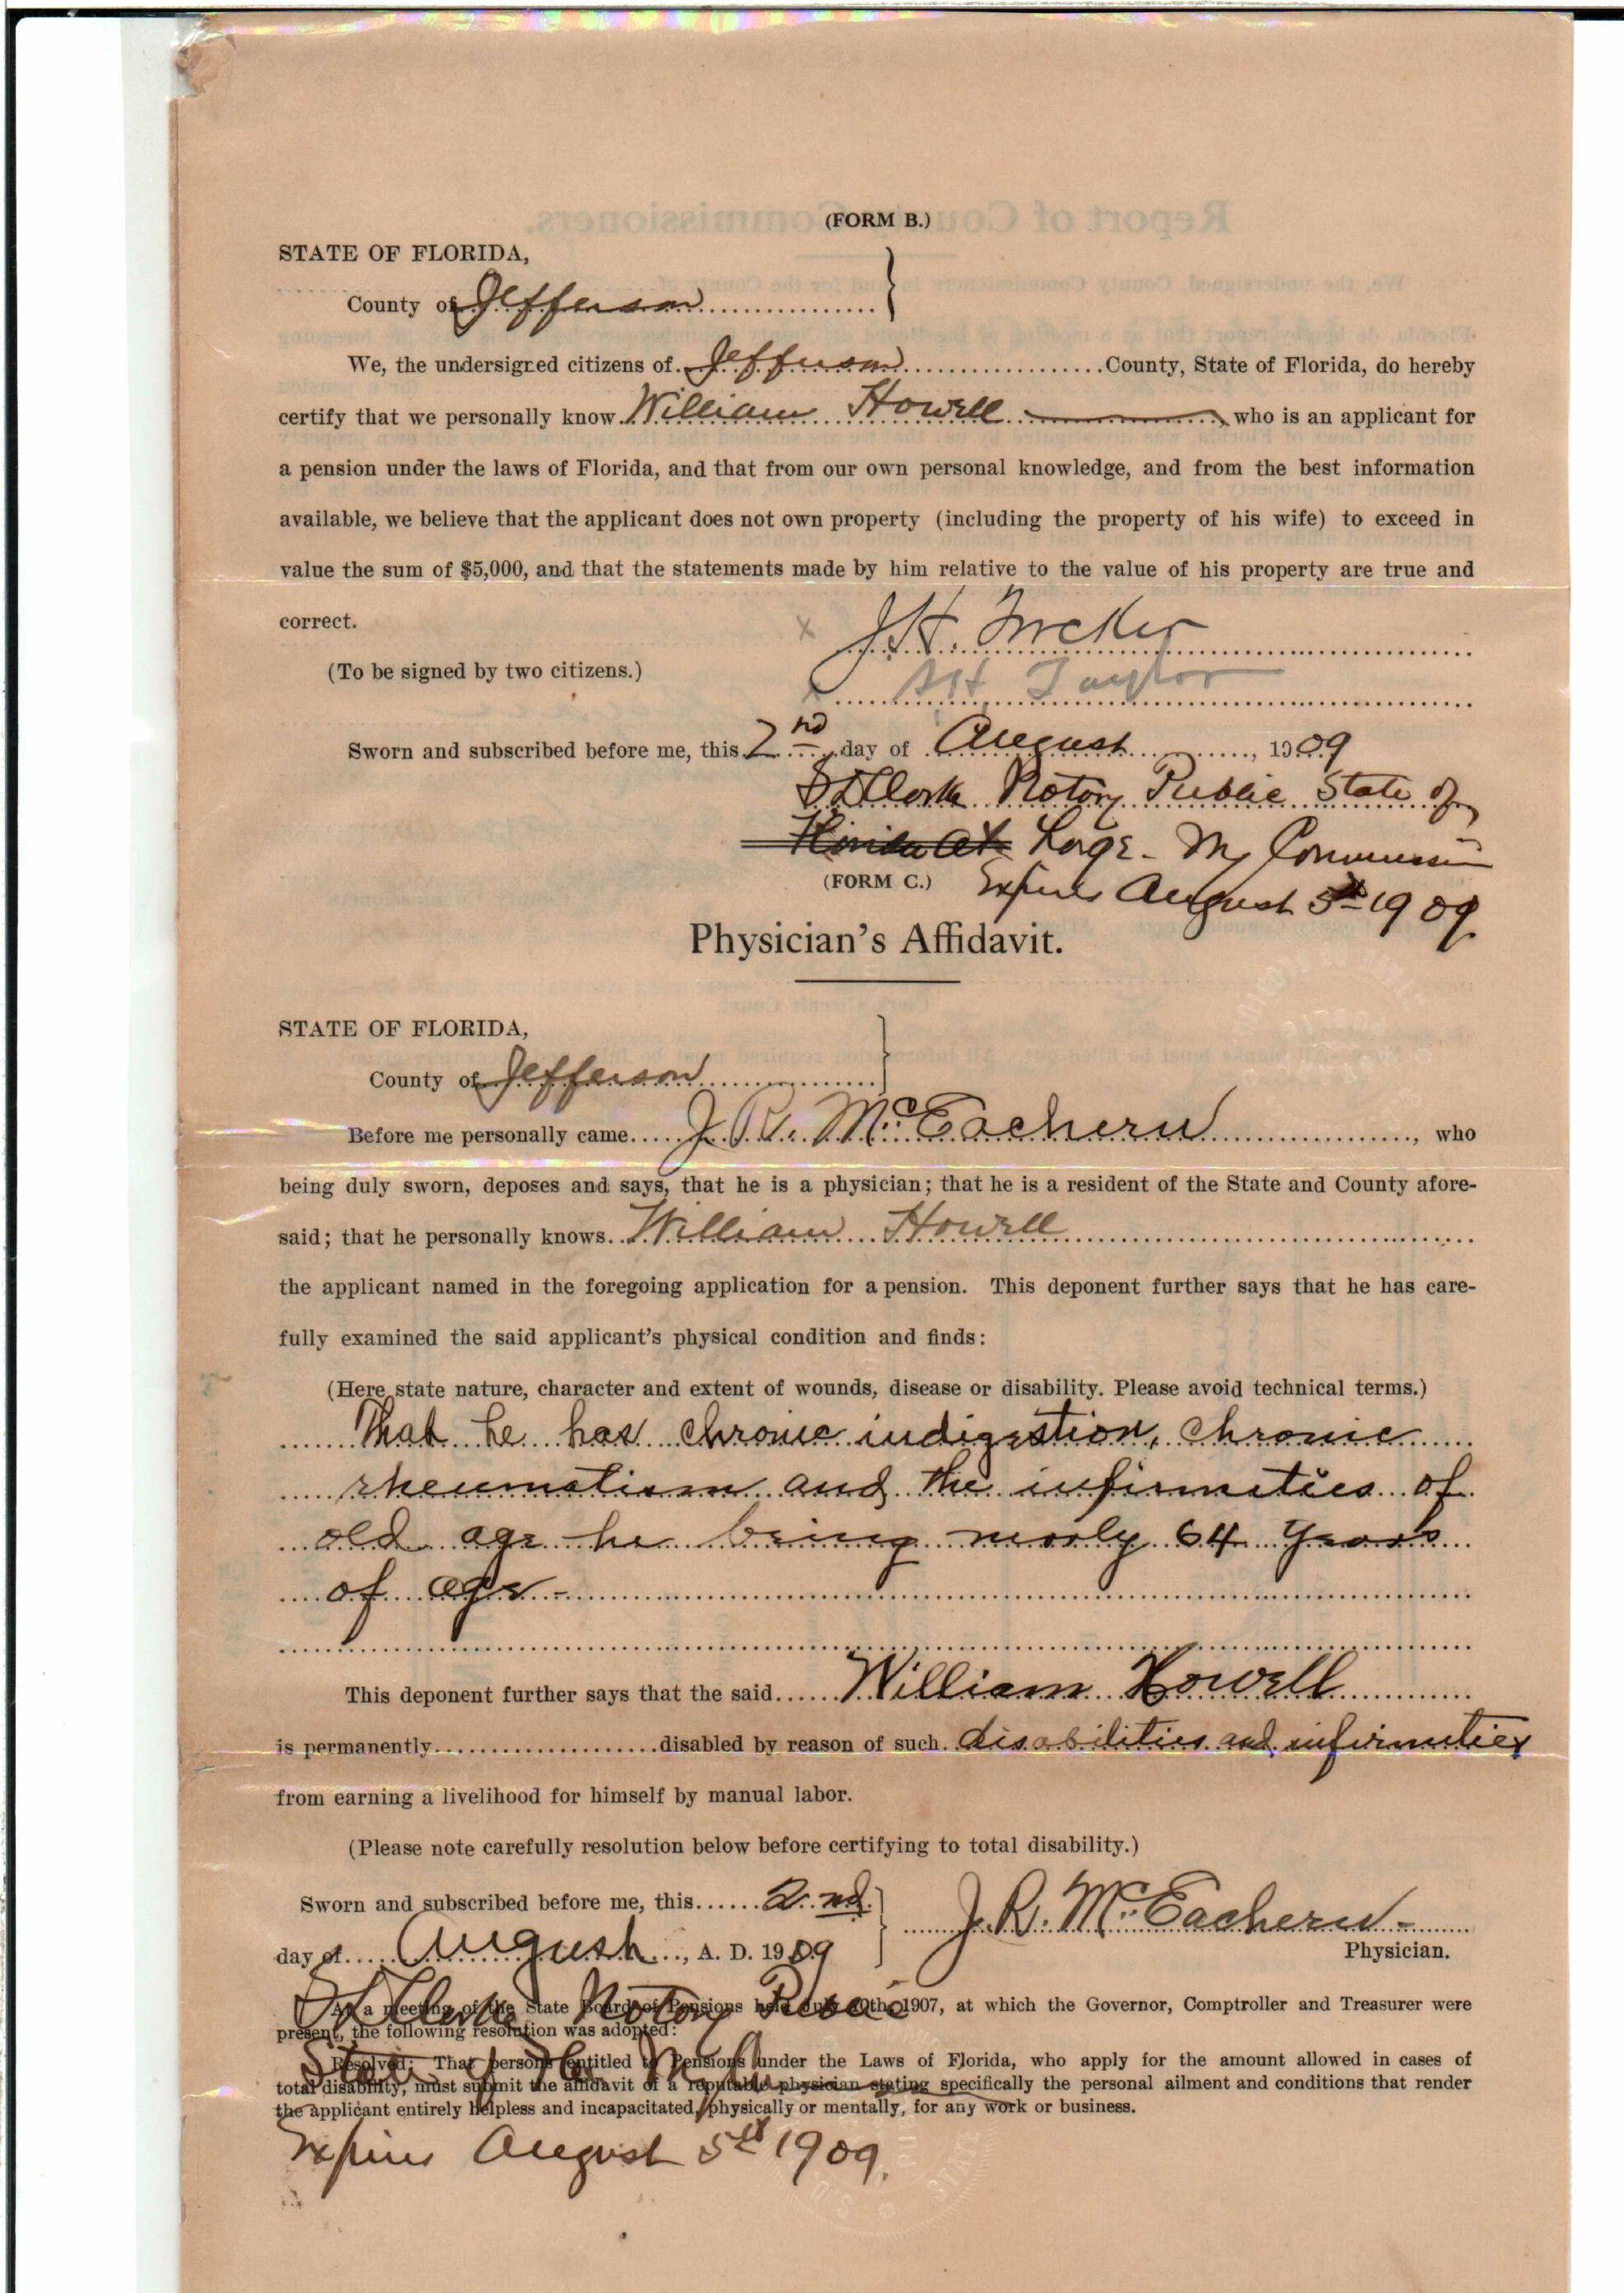 (FORM B.)
STATE OF FLORIDA,
County of Jefferson
We, the undersigned citizens of Jefferson County, State of Florida, do hereby
certify that we personally know William Howell who is an applicant for
a pension under the laws of Florida, and that from our own personal knowledge, and from the best information
available, we believe that the applicant does not own property (including the property of his wife) to exceed in
value the sum of $5,000, and that the statements made by him relative to the value of his property are true and
correct.
J.H.
(To be signed by two citizens.)
Taylor
Sworn and subscribed before me, this 2nd day of August, 1909
Clark Notary Public State of
Florida at Large - My Commission
(FORM C.)
Expires August 5th 1909
Physician's Affidavit.
STATE OF FLORIDA,
County of Jefferson
Before me personally came J. R. McEachern, who
being duly sworn, deposes and says, that he is a physician; that he is a resident of the State and County afore-
said; that he personally knows William Howell
the applicant named in the foregoing application for a pension. This deponent further says that he has care-
fully examined the said applicant's physical condition and finds:
(Here state nature, character and extent of wounds, disease or disability. Please avoid technical terms.)
That he has chronic indigestion, chronic
rheumatism and the infirmities of
old age he being nearly 64 years
of age -
This deponent further says that the said William Howell
is permanently disabled by reason of such disabilities and infirmities
from earning a livelihood for himself by manual labor.
(Please note carefully resolution below before certifying to total disability.)
Sworn and subscribed before me, this 2nd
day of August, A. D. 1909
J. R. McEachern -
Physician.
Clark Notary Public
At a meeting of the State Board of Pensions held July 10th, 1907, at which the Governor, Comptroller and Treasurer were
present, the following resolution was adopted:
State of Fla. My
Resolved: That persons entitled to Pensions under the Laws of Florida, who apply for the amount allowed in cases of
total disability, must submit the affidavit of a reputable physician stating specifically the personal ailment and conditions that render
the applicant entirely helpless and incapacitated, physically or mentally, for any work or business.
Expires August 5th 1909.